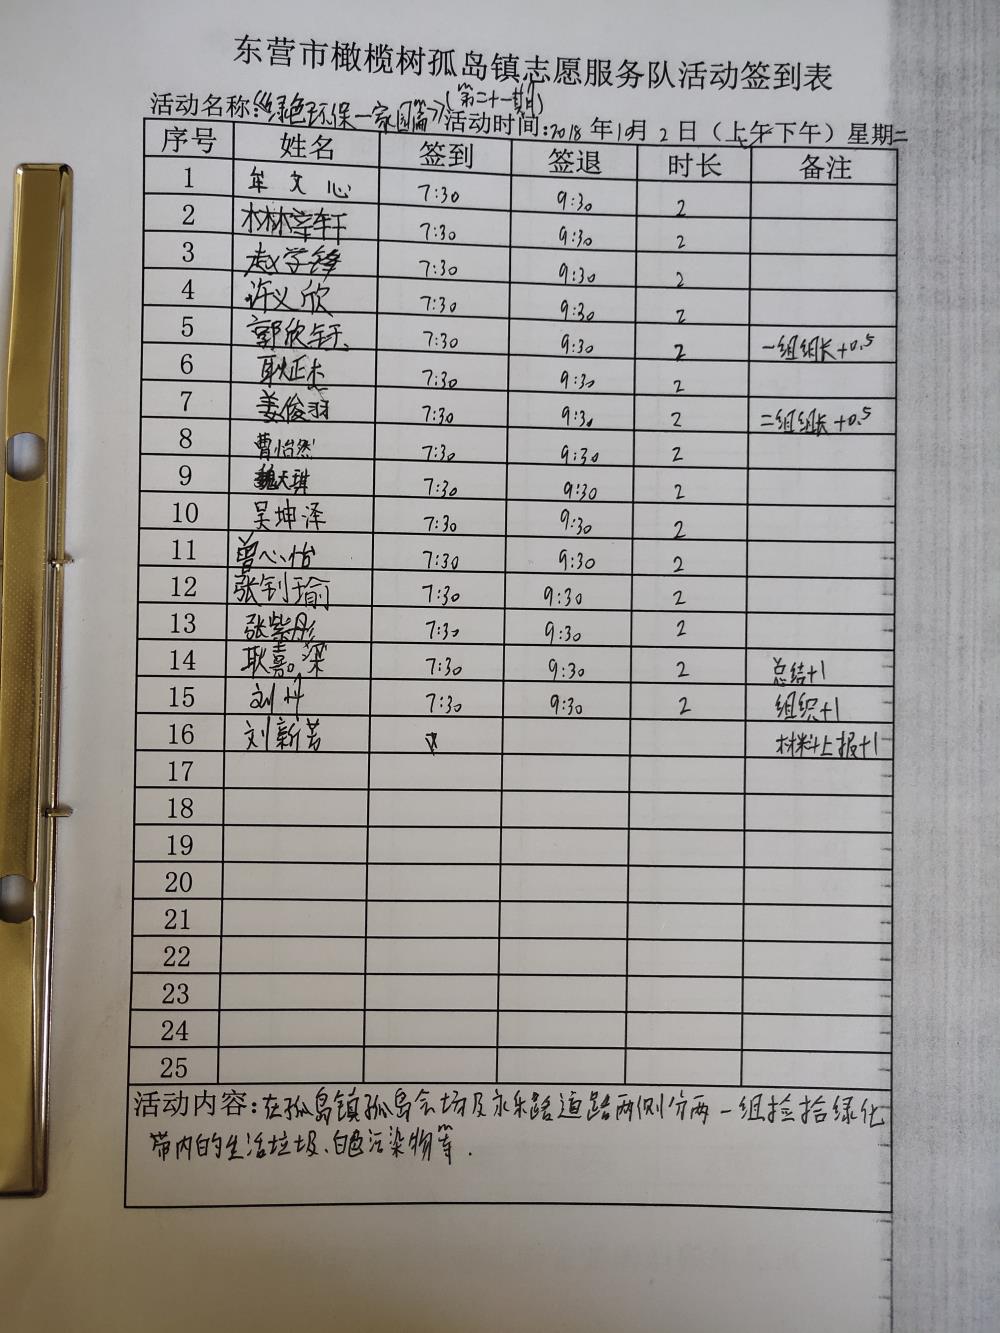 东营市橄榄树孤岛镇志愿服务队活动签到表
(第二十一期)
活动名称:《绿色环保一家园篇》 活动时间:2018年10月2日（上午下午）星期二
序号 姓名 签到 签退 时长 备注
1 牟文心 7:30 9:30 2
2 林辛轩 7:30 9:30 2
3 赵学锋 7:30 9:30 2
4 许义欣 7:30 9:30 2
5 郭欣 7:30 9:30 2 一组组长+0.5
6 耿正杰 7:30 9:30 2
7 姜俊羽 7:30 9:30 2 二组组长+0.5
8 曹怡然 7:30 9:30 2
9 魏天琪 7:30 9:30 2
10 吴坤泽 7:30 9:30 2
11 曾心怡 7:30 9:30 2
12 张钊瑜 7:30 9:30 2
13 张紫彤 7:30 9:30 2
14 耿嘉深 7:30 9:30 2 总结+1
15 刘丹 7:30 9:30 2 组织+1
16 刘新芳 材料上报+1
17
18
19
20
21
22
23
24
25
活动内容:在孤岛镇孤岛会场及永乐路道路两侧分两一组捡拾绿化
带内的生活垃圾、白色污染物等.